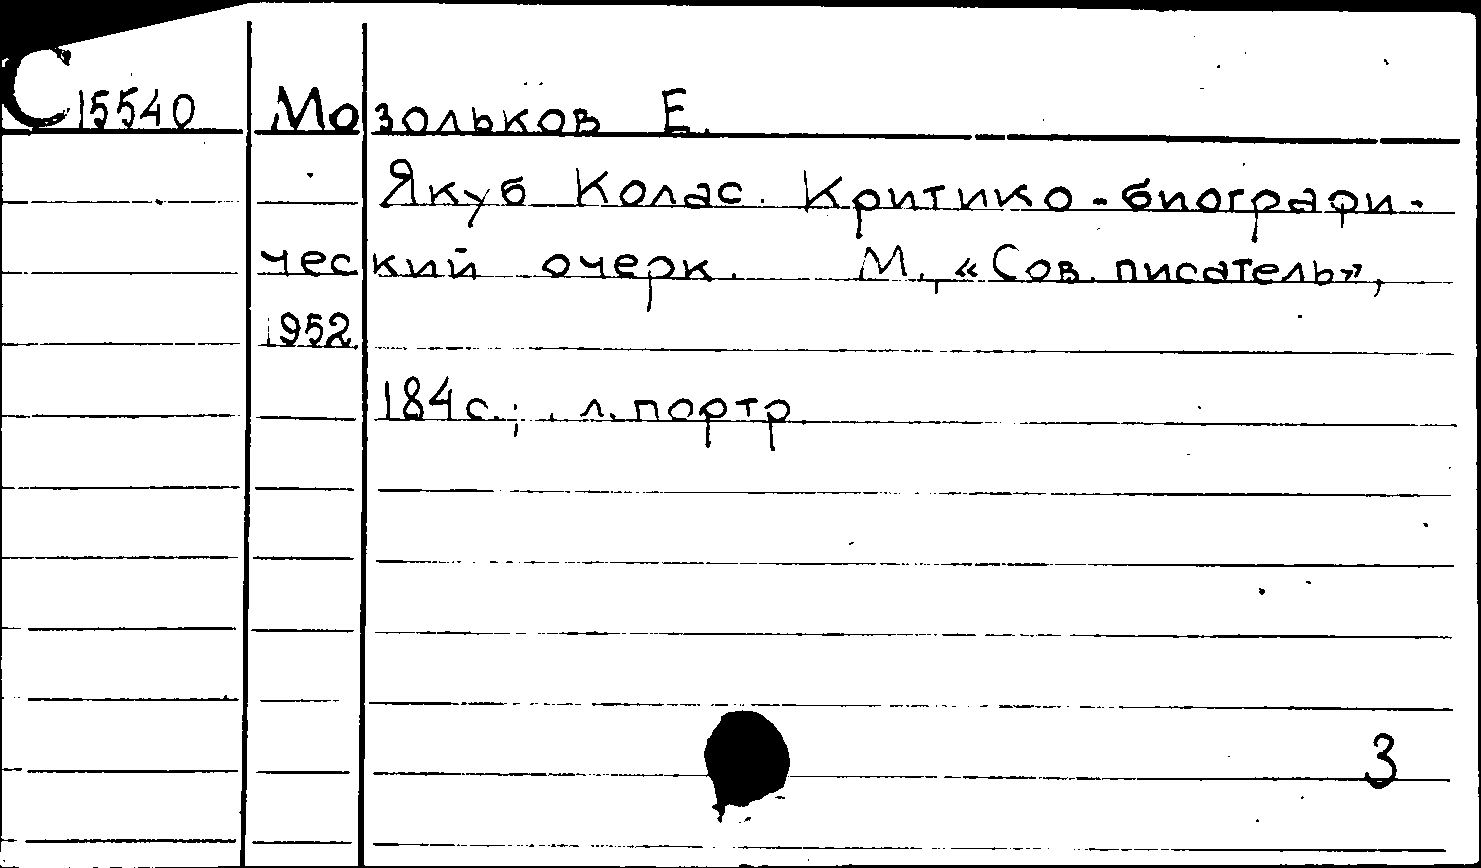 С 15540 Мозольков Е.
Якуб Колас. Критико-биографи-
ческий очерк. М., «Сов. писатель»,
1952.
184 с.; л. портр.
3